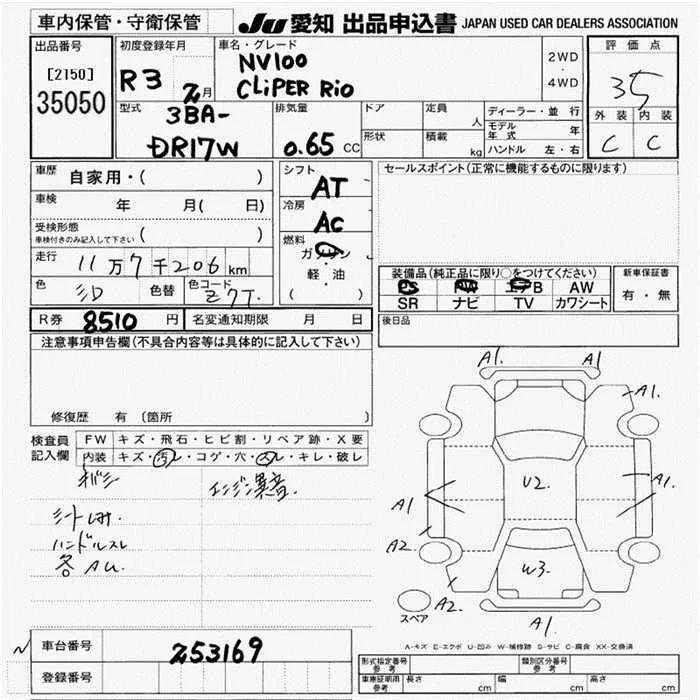 車内保管・守衛保管
JU 愛知 出品申込書 JAPAN USED CAR DEALERS ASSOCIATION
出品番号
[2150]
35050
初度登録年月
R3 2月
車名・グレード
NV100
CLiPER Rio
2WD
・
4WD
評価点
35
外装 内装
C C
型式
3BA-
DR17W
排気量
0.65 CC
ドア
形状
定員 人
積載 kg
ディーラー・並行
モデル年式 年
ハンドル 左・右
車歴 自家用・( )
車検 年 月( 日)
受検形態
車検付きのみ記入して下さい ( )
走行 11万7千206km
色
色替
色コード Z7T.
シフト AT
冷房 AC
燃料 ガソリン
・
軽・油
( )
セールスポイント(正常に機能するものに限ります)
装備品(純正品に限り○をつけてください)
PS PW エアB AW
SR ナビ TV カワシート
新車保証書
有・無
R券 8510 円
名変通知期限 月 日
後日品
注意事項申告欄(不具合内容等は具体的に記入して下さい)
修復歴 有 〔箇所 〕
検査員
記入欄
FW キズ・飛石・ヒビ割・リペア跡・X要
内装 キズ・汚レ・コゲ・穴・スレ・キレ・破レ
エンジン異音.
ハンドルスレ
各AU.
A1. A1
A1.
A1
A1.
U2.
A2
W3.
A2.
A1.
スペア
A-キズ E-エクボ U-凹み W-補修跡 S-サビ C-腐食 XX-交換済
車台番号 253169
登録番号
型式指定番号
参考
類別区分番号
参考
車庫証明用
参考
長さ cm
幅 cm
高さ cm